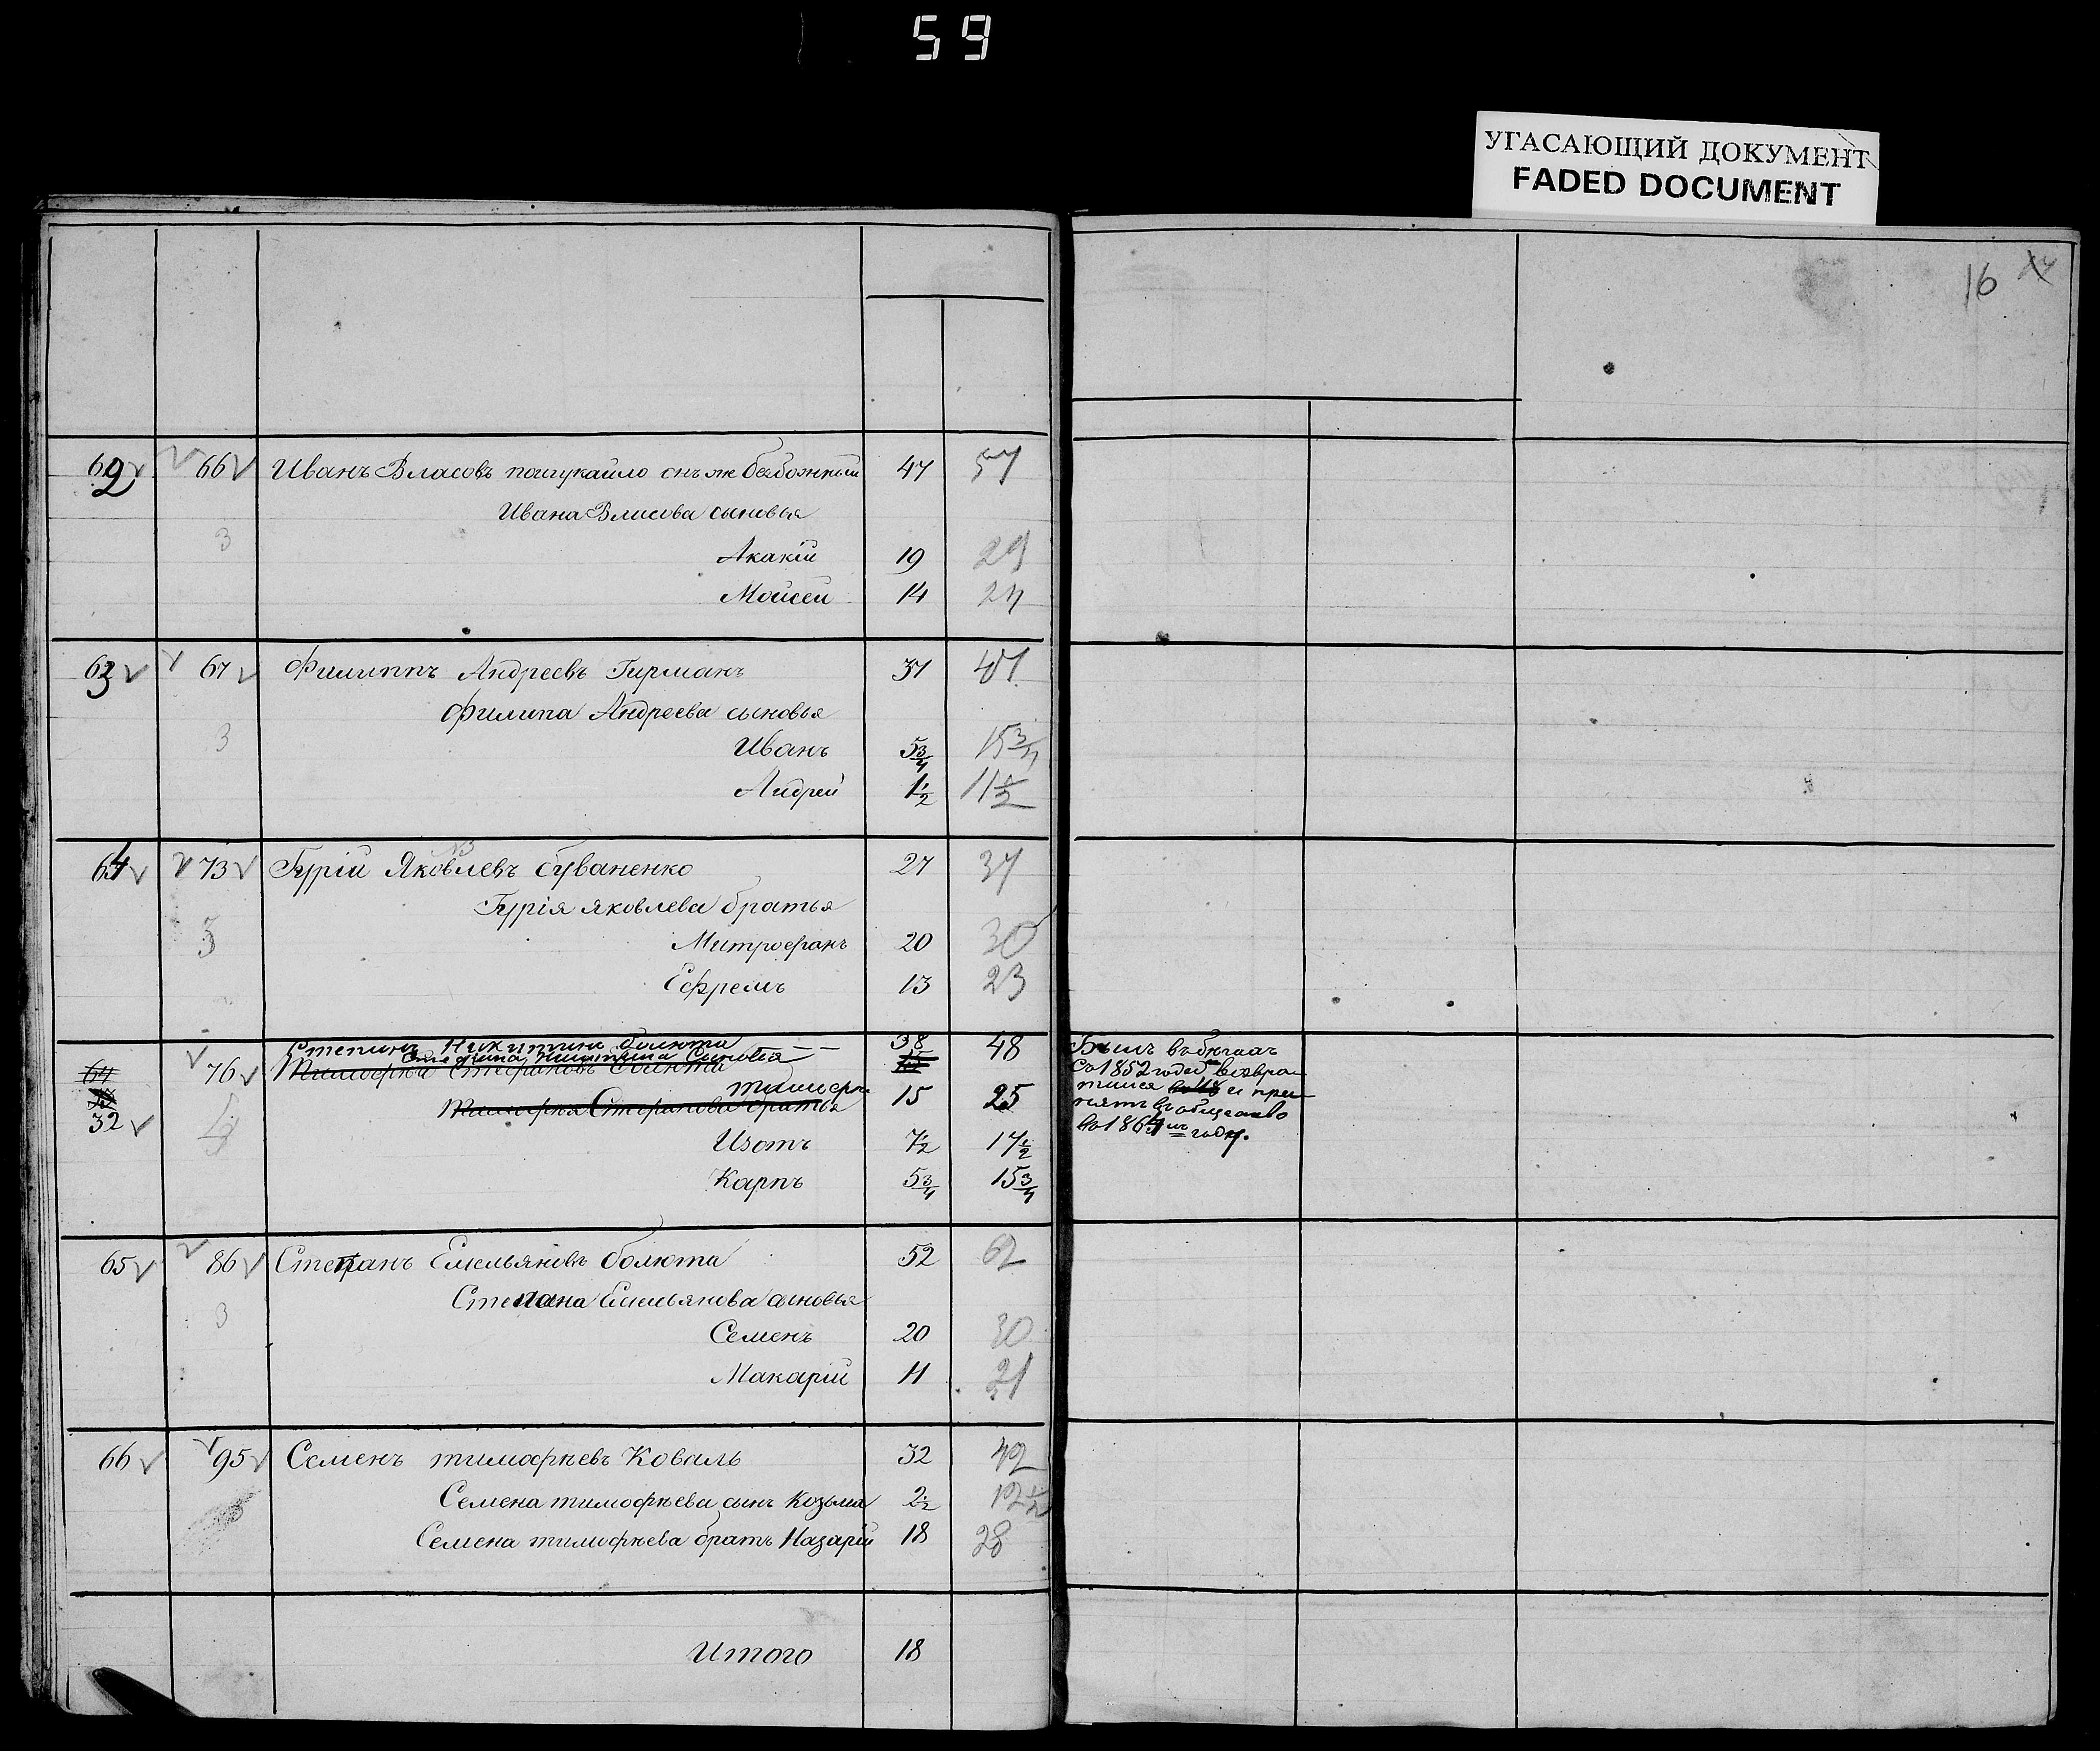 59
УГАСАЮЩИЙ ДОКУМЕНТ
FADED DOCUMENT
16
62 66 Иванъ Власовъ онъ же безбожный 47 57
Ивана Власова сыновья
3
Акакій 19 29
Моисей 14 24
63 67 Филиппъ Андреевъ Гирманъ 37 47
Филипа Андреева сыновья
3 Иванъ 5 3/4 15 3/4
Андрей 1 1/2 11 1/2
64 73 Гурій Яковлевъ буваненко 27 37
Гурія яковлева братья
3 Митрофанъ 20 30
Ефремъ 13 23
Степанъ Никитинъ болюта 38 48
64 76 Тимофей Стефановъ болюта
Тимофея Стефанова братья 15 25
32
4
Изотъ 7 1/2 17 1/2
Карпъ 5 3/4 15 3/4
Былъ въ бѣгахъ
со 1852 года возвра-
тился и при-
нятъ въ общество
во 1864мъ году.
65 86 Степанъ Емельяновъ болюта 52 62
Степана Емельянова сыновья
3
Семенъ 20 30
Макарій 11 21
66 95 Семенъ тимофѣевъ Коваль 32 42
Семена тимофѣева сынъ Козьма 2 1/2 12 1/2
Семена тимофѣева братъ Назарій 18 28
Итого 18